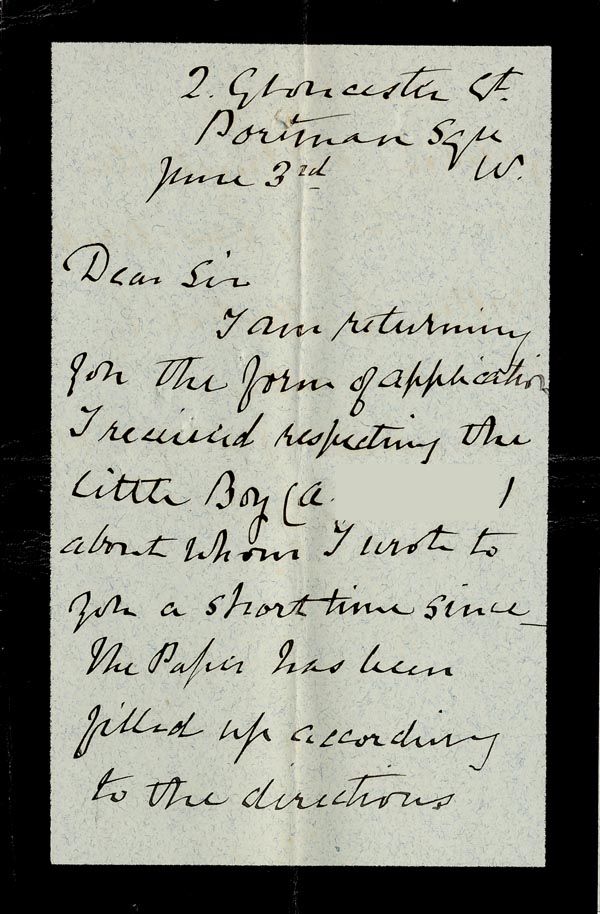 2. Gloucester St.
Portman Sqre
June 3rd W.
Dear Sir
I am returning
you the form of application
I received respecting the
little Boy (A.          )
about whom I wrote to
you a short time since_
The Paper has been
filled up according
to the directions